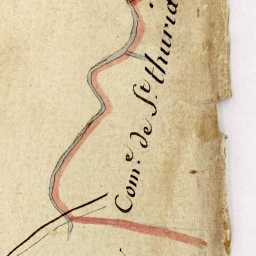 Com.e de St. thuria